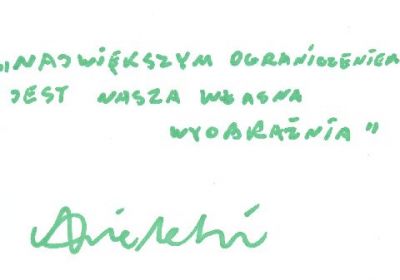 „NAJWIĘKSZYM OGRANICZENIEM
JEST NASZA WŁASNA
WYOBRAŹNIA”